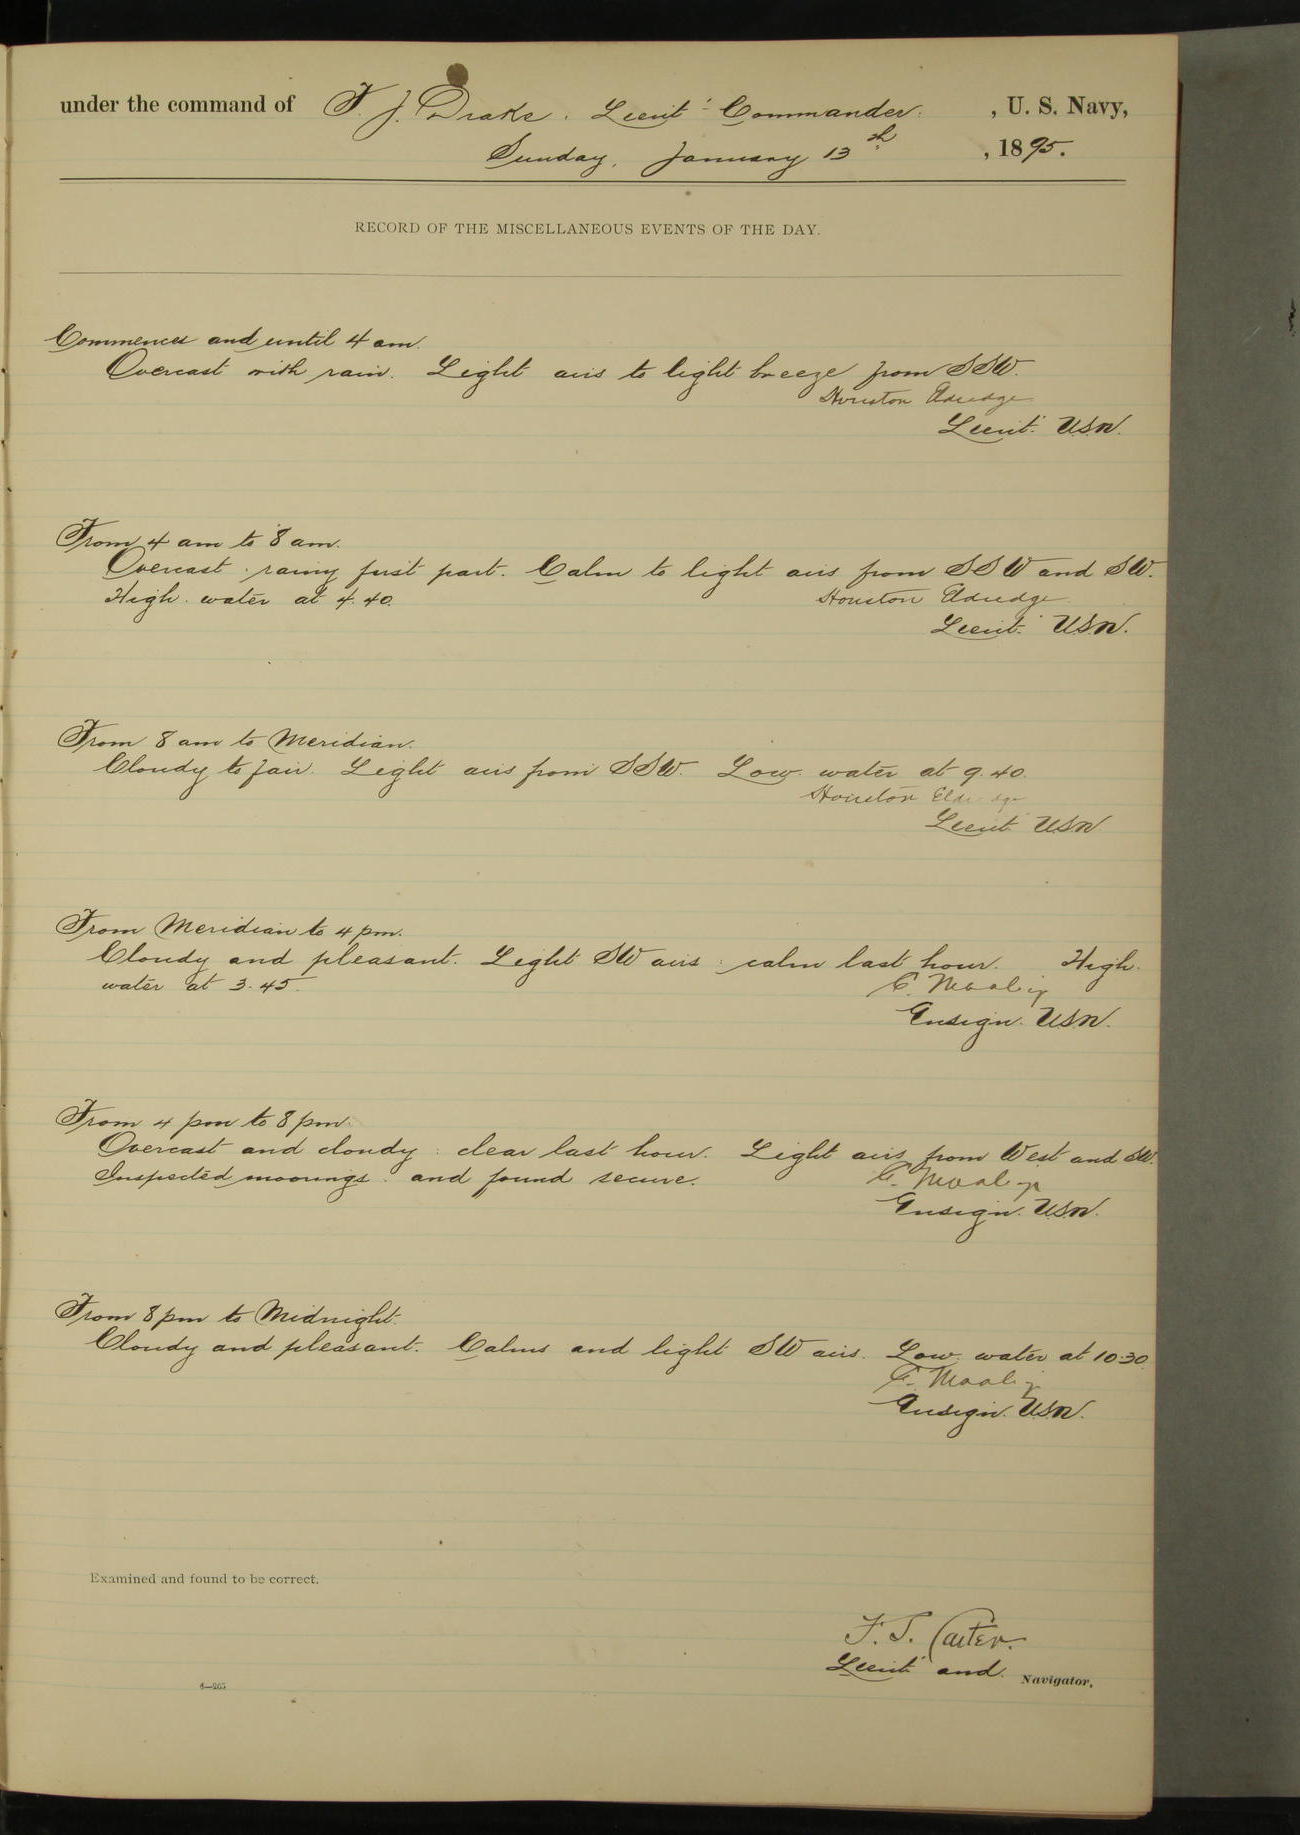 under the command of F. J. Drake. Lieut. Commander. , U. S. Navy,
Sunday, January 13th , 1895.
RECORD OF THE MISCELLANEOUS EVENTS OF THE DAY.
Commences and until 4 am.
Overcast with rain. Light airs to light breeze from SSW.
Houston Eldredge
Lieut. USN.
From 4 am to 8 am.
Overcast. rainy first part. Calm to light airs from SSW and SW.
High water at 4.40. Houston Eldredge
Lieut. USN.
From 8 am to Meridian.
Cloudy to fair. Light airs from SSW. Low water at 9.40.
Houston Eldredge
Lieut USN
From Meridian to 4 pm.
Cloudy and pleasant. Light SW airs : calm last hour. High
water at 3.45. C.
Ensign. USN.
From 4 pm to 8 pm.
Overcast and cloudy : clear last hour. Light airs from West and SW.
Inspected moorings. and found secure. C.
Ensign. USN.
From 8 pm to Midnight.
Cloudy and pleasant. Calms and light SW airs. Low water at 10.30.
C.
Ensign. USN.
Examined and found to be correct.
F. T. Carter.
Lieut and Navigator.